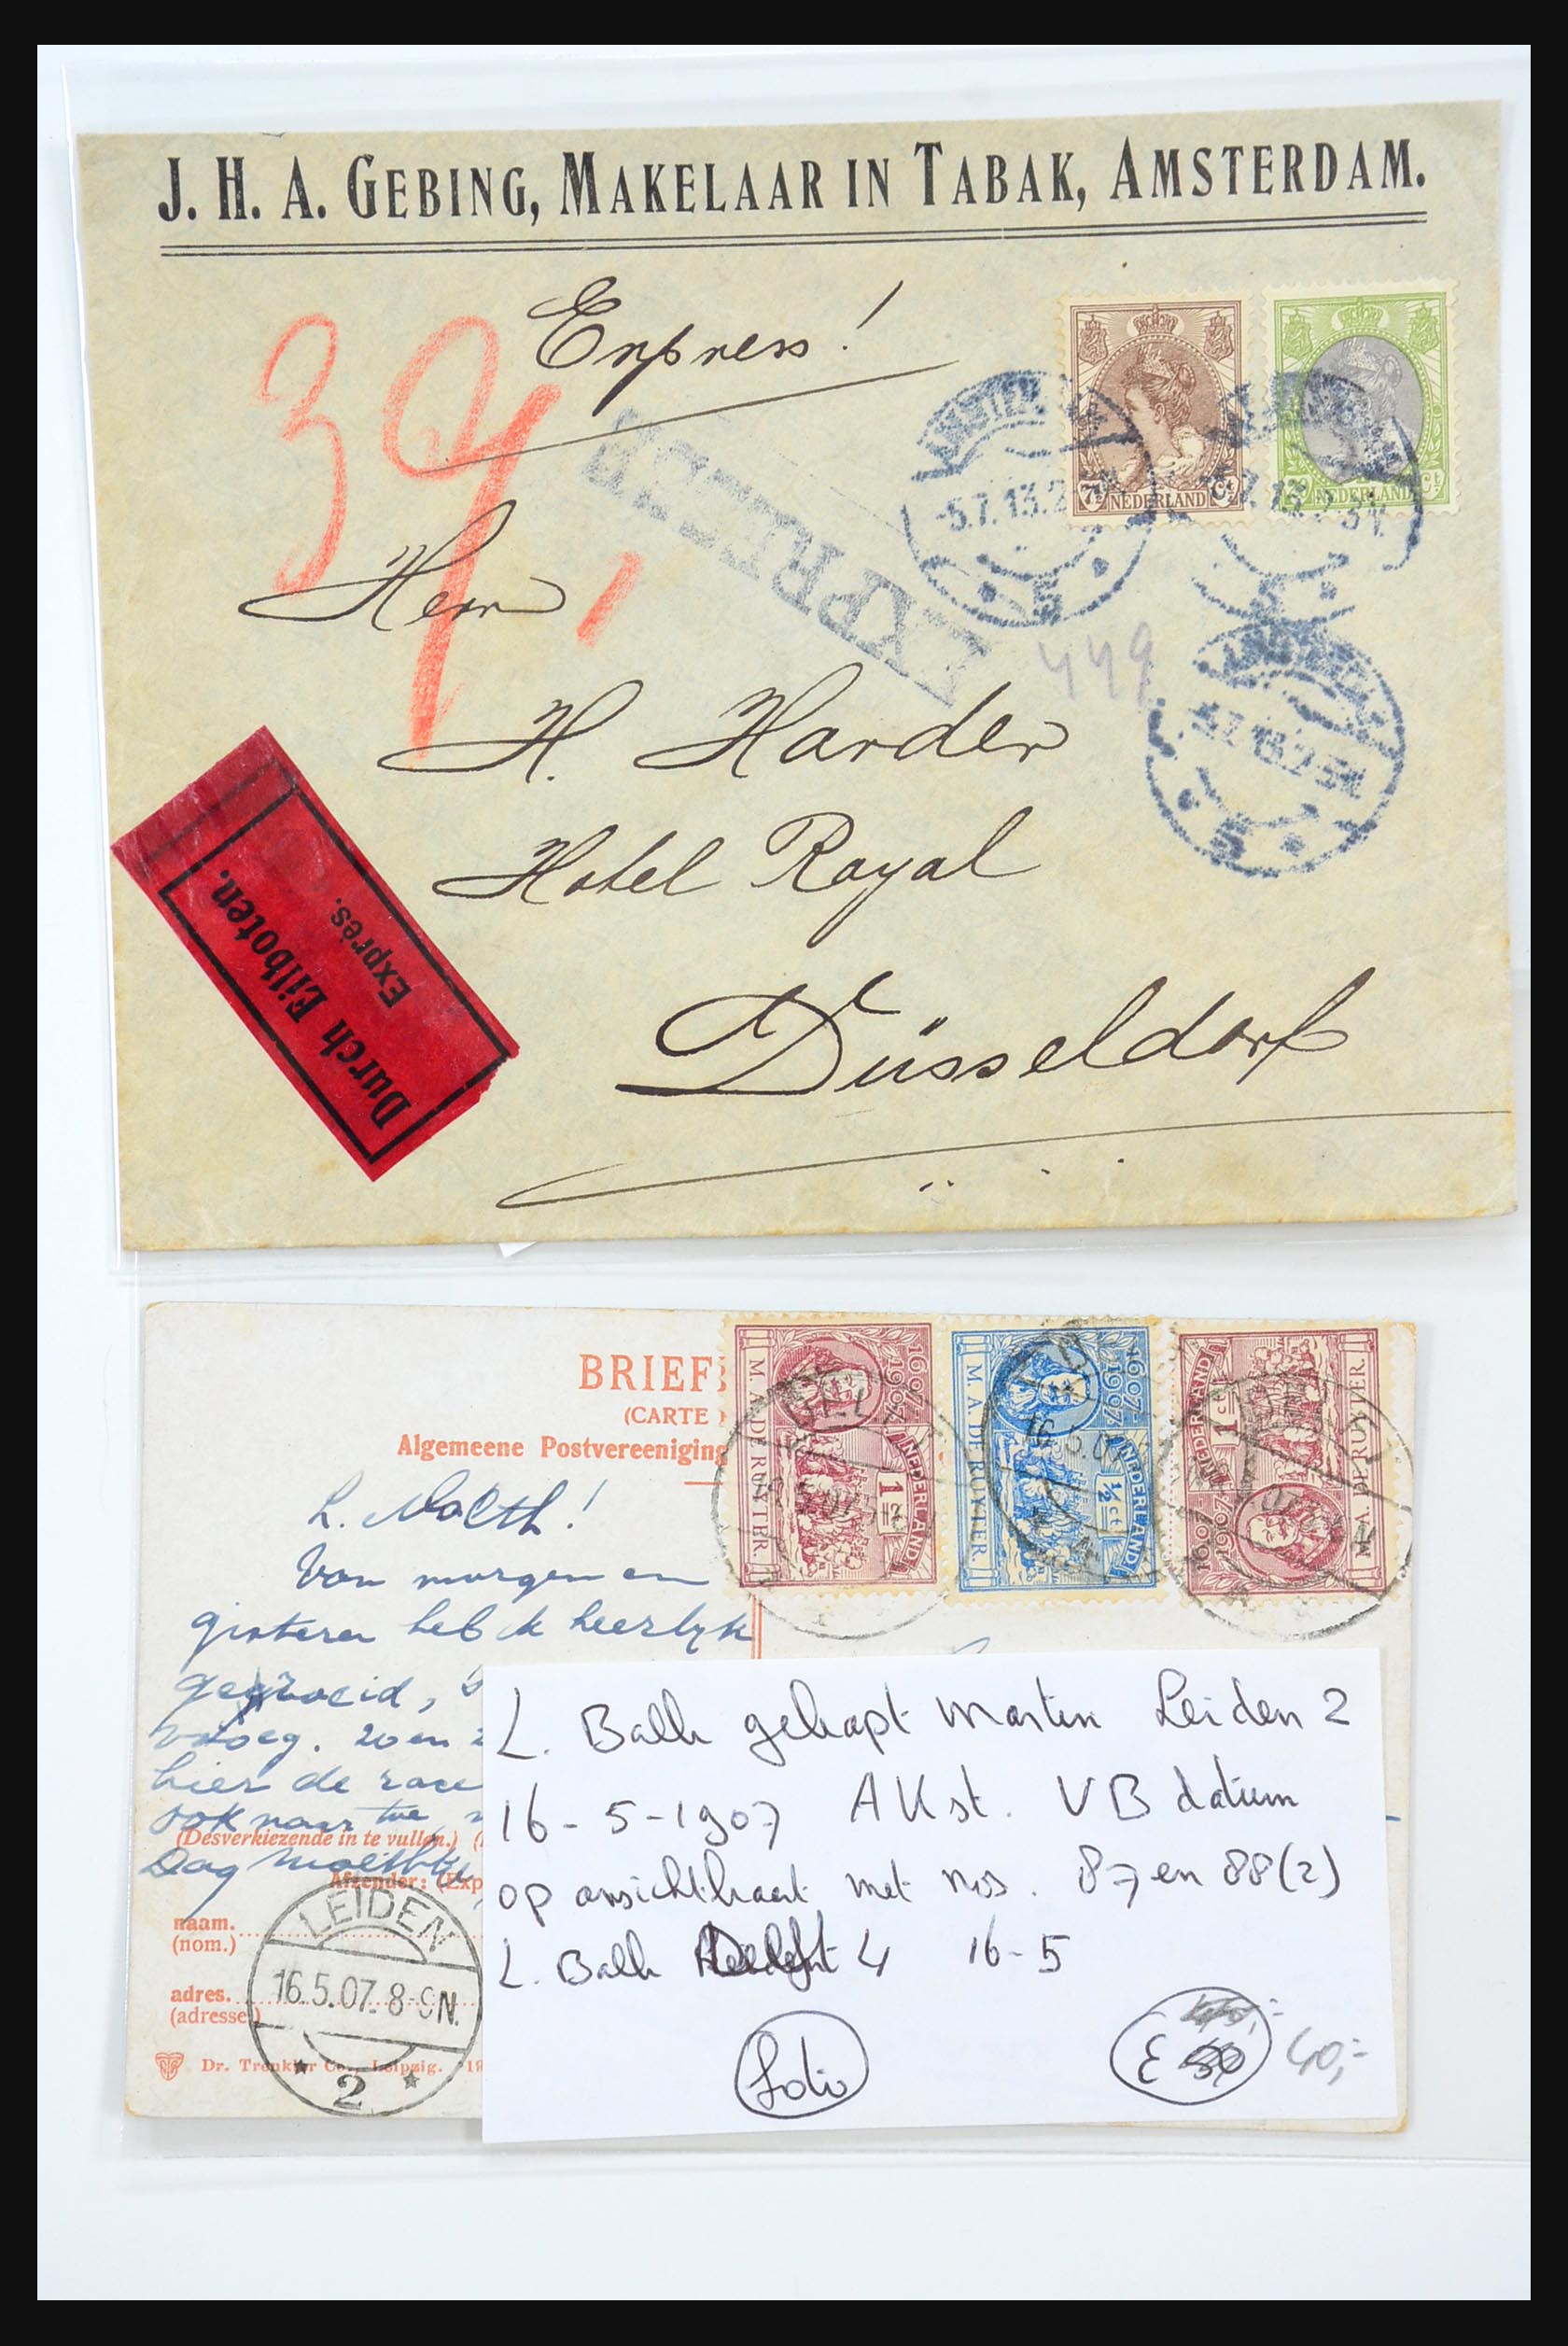 J. H. A. GEBING, MAKELAAR IN TABAK, AMSTERDAM.
Express!
39,
EXPRESSE
7½ NEDERLAND Ct
NEDERLAND Ct
-5.7.13.2
5
449
5
Herrn
H. Harder
Hotel Royal
Düsseldorf
Durch Eilboten.
Exprès.
BRIEF
(CARTE
Algemeene Postvereeniging
1607 1907
M. A. DE RUYTER.
NEDERLAND
1 ct
1607 1907
M. A. DE RUYTER.
NEDERLAND
½ ct
16.5.07
1607 1907
M. A. DE RUYTER.
NEDERLAND
1 ct
L. !
Van morgen en
gisteren heb ik heerlyk
geroeid,
vroeg. 20 en 2
hier de race
ook naar toe
(Desverkiezende in te vullen.)
Dag
Afzender: (Exp
naam.
(nom.)
adres.
(adresse)
LEIDEN
16.5.07. 8-9N.
2
Dr. Trenkler Co., Leipzig. 19
L. Balk gekapt Leiden 2
16-5-1907 AK st. VB datum
op ansichtkaart met nos. 87 en 88(2)
L. Balk 4 16-5
40,-